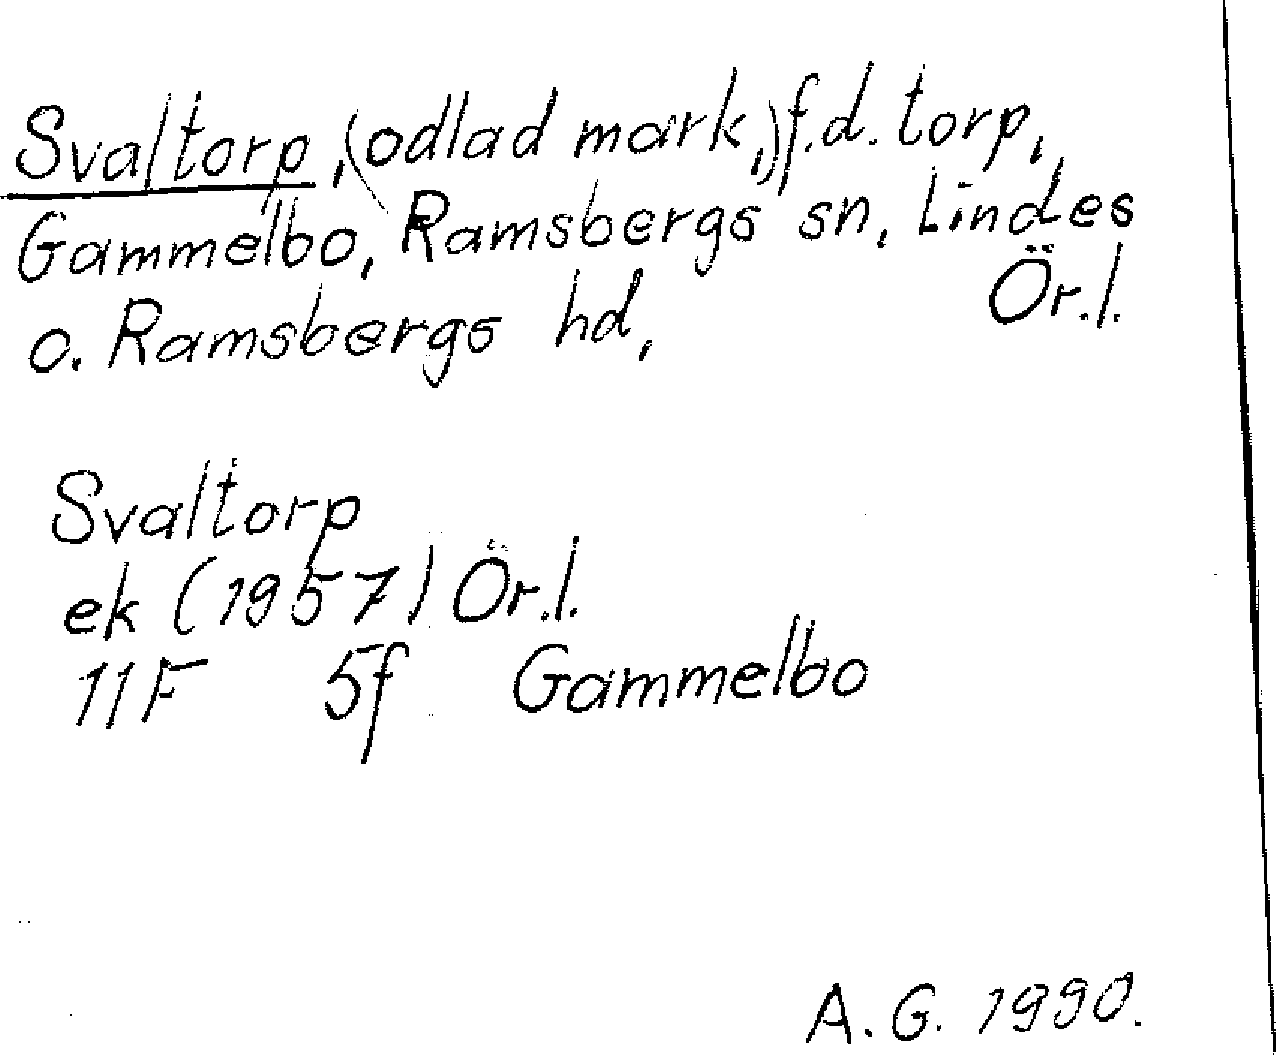 Svaltorp, (odlad mark,) f.d. torp,
Gammelbo, Ramsbergs sn, Lindes
o. Ramsbergs hd, Ör.l.
Svaltorp
ek (1957) Ör.l.
11F 5f Gammelbo
A. G. 1990.